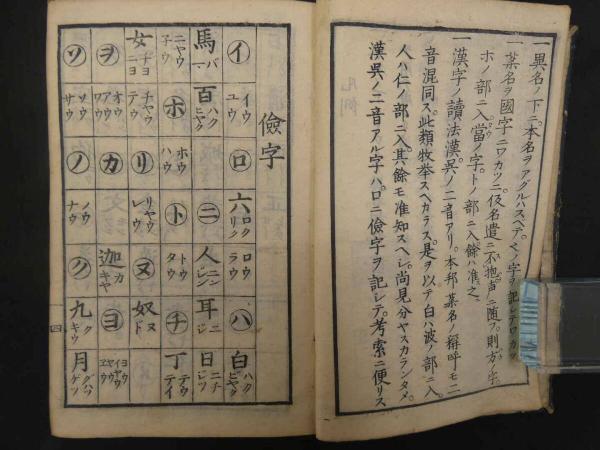 一異名ノ下ニ本名ヲアグルハスベテ ノ字ヲ記シテロカツ
一 名ヲ國字ニワカツニ仮名遣ニ不抱声ニ随フ則方ノ字
ホノ部ニ入當ノ字トノ部ニ入餘ハ準之
一漢字ノ讀法漢呉ノ二音アリ本邦 名ノ稱呼モ二
音混同ス此類枚挙スヘカラス是ヲ以テ白ハ波ノ部ニ入
人ハ仁ノ部ニ入其餘モ准知スヘシ尚見分ヤスカランタメ
漢呉ノ二音アル字ハ口ニ儉字ヲ記シテ考索ニ便リス
儉字
イ イウ ユウ ロ 六 ロク リク ロウ ラウ ハ 白 ハク ビヤク
馬 バ マ 百 ハク ヒヤク ニ 人 ニン ジン 耳 ニ ジ 日 ニチ ジツ
ニヤウ 子ウ ホ ホウ ハウ ト トウ タウ チ 丁 テウ テイ
女 ヂヨ ニヨ チヤウ テウ リ リヤウ レウ ヌ 奴 ヌ ド
ヲ オウ アウ ワウ カ 迦 カ キヤ ヨ ヨウ
ソ ソウ サウ ノ ノウ ナウ ク 九 ク キウ 月 グハツ ゲツ
四